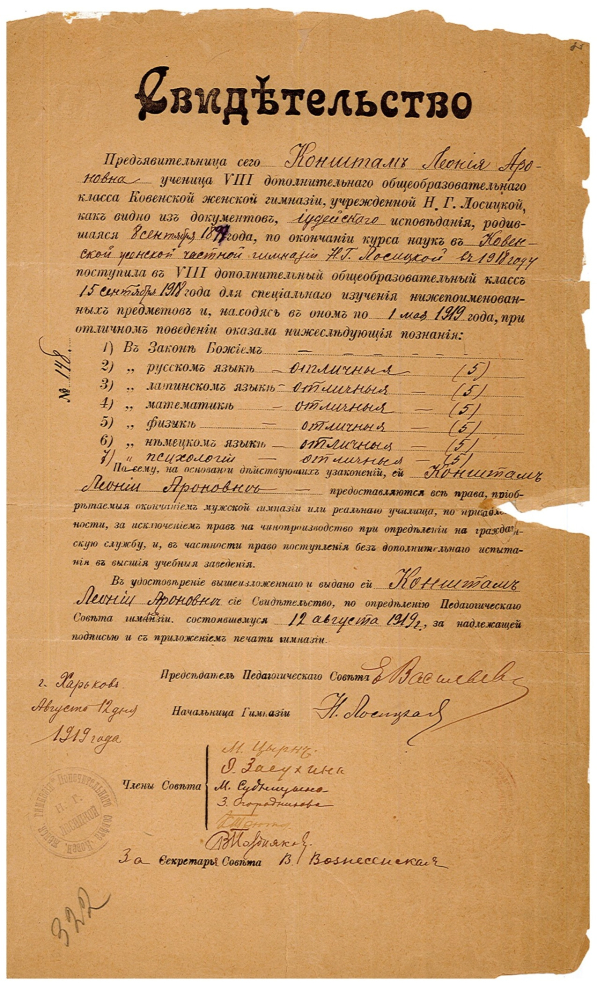 Свидѣтельство
Предъявительница сего Конштамъ Леонія Аро-
новна ученица VIII дополнительнаго общеобразовательнаго
класса Ковенской женской гимназіи, учрежденной Н. Г. Лосицкой,
какъ видно изъ документовъ, іудейскаго исповѣданія, родив-
шаяся 8 сентября года, по окончаніи курса наукъ въ Ковен-
ской женской частной гимназіи Н.Г. Лосицкой въ 1918 году
поступила въ VIII дополнительный общеобразовательный классъ
15 сентября 1918 года для спеціальнаго изученія нижепоименован-
ныхъ предметовъ и, находясь въ ономъ по 1 мая 1919 года, при
отличномъ поведеніи оказала нижеслѣдующія познанія:
№ 148.
1) Въ Законѣ Божіемъ — — — — —
2) „ русскомъ языкѣ — отличныя — (5)
3) „ латинскомъ языкѣ — отличныя — (5)
4) „ математикѣ — отличныя — (5)
5) „ физикѣ — отличныя — (5)
6) „ нѣмецкомъ языкѣ — отличныя — (5)
7) „ психологіи — отличныя — (5)
Посему, на основаніи дѣйствующихъ узаконеній, ей Конштамъ
Леоніи Ароновнѣ — предоставляются всѣ права, пріоб-
рѣтаемыя окончаніемъ мужской гимназіи или реальнаго училища, по
ности, за исключеніемъ правъ на чинопроизводство при опредѣленіи на граждан-
скую службу, и, въ частности право поступленія безъ дополнительнаго испыта-
нія въ высшія учебныя заведенія.
Въ удостовѣреніе вышеизложеннаго и выдано ей Конштамъ
Леоніи Ароновнѣ сіе Свидѣтельство, по опредѣленію Педагогическаго
Совѣта гимназіи, состоявшемуся 12 августа 1919 г., за надлежащей
подписью и съ приложеніемъ печати гимназіи.
Предсѣдатель Педагогическаго Совѣта Е Васильевъ
г. Харьковъ
Августа 12 дня
1919 года
Начальница Гимназіи Н. Лосицкая
Члены Совѣта
М. Цырнъ
Э. Засухина
М. Судницына
З. Огородникова
За Секретарь Совѣта В Вознесенская
322